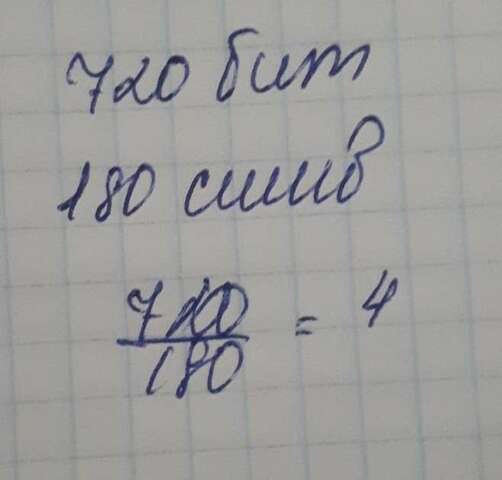 720 бит
180 симв
720
180
= 4